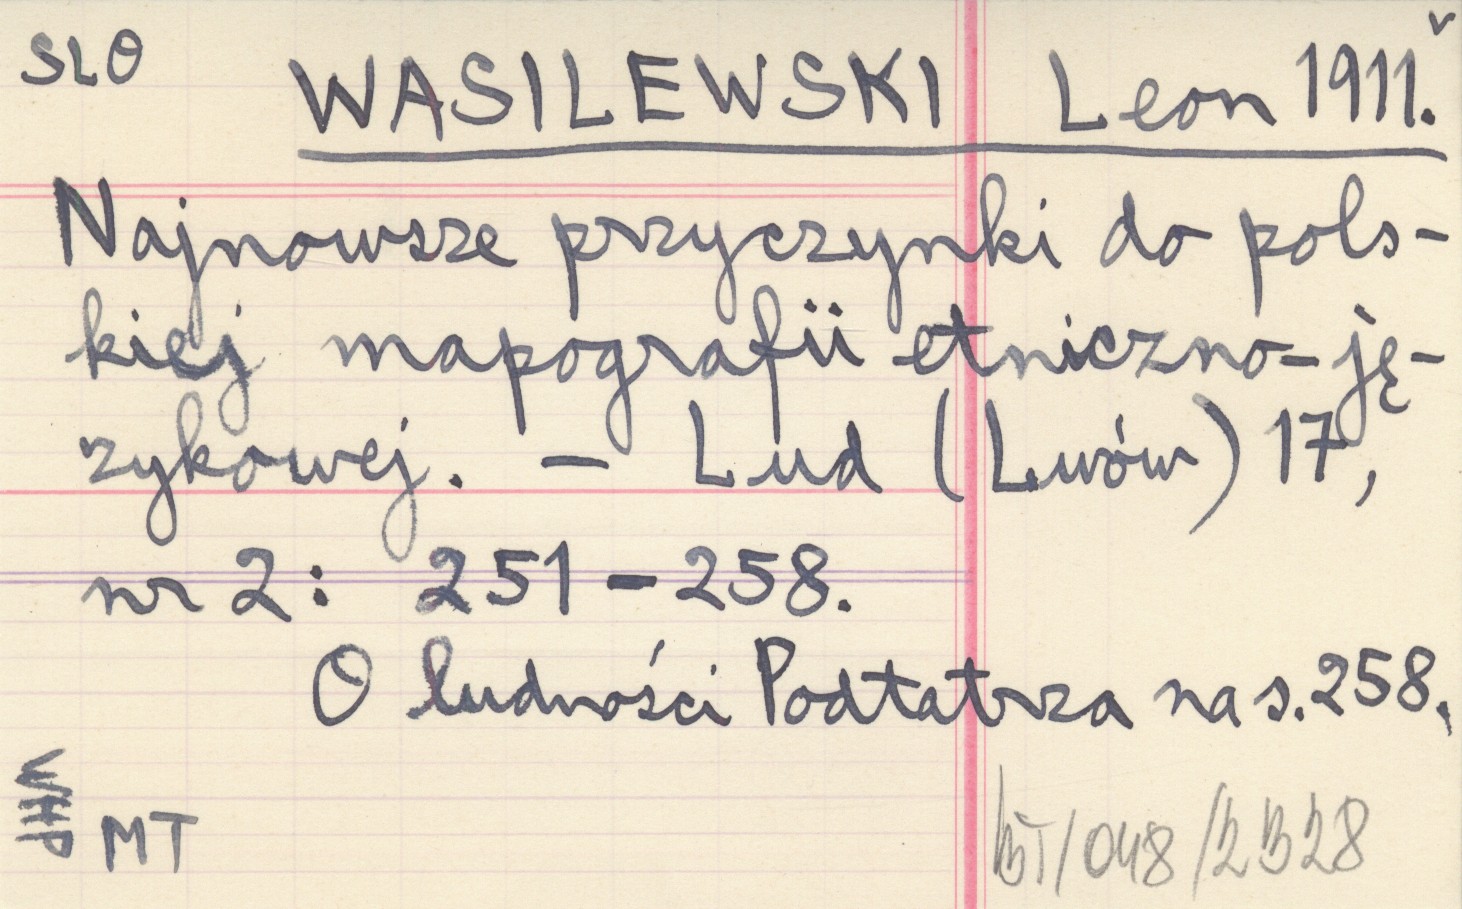 SLO
WASILEWSKI Leon 1911.
Najnowsze przyczynki do pols-
kiej mapografii etniczno-ję-
zykowej. – Lud (Lwów) 17,
nr 2: 251–258.
O ludności Podtatrza na s. 258.
WHP
MT
BT/048/2328